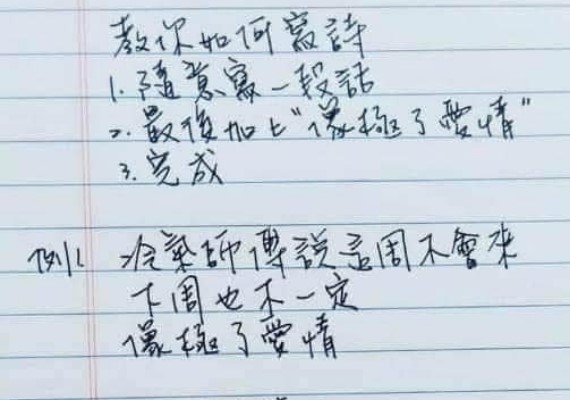 教你如何寫詩
1. 隨意寫一段話
2. 最後加上"像極了愛情"
3. 完成
例1. 冷氣師傅說這周不會來
下周也不一定
像極了愛情